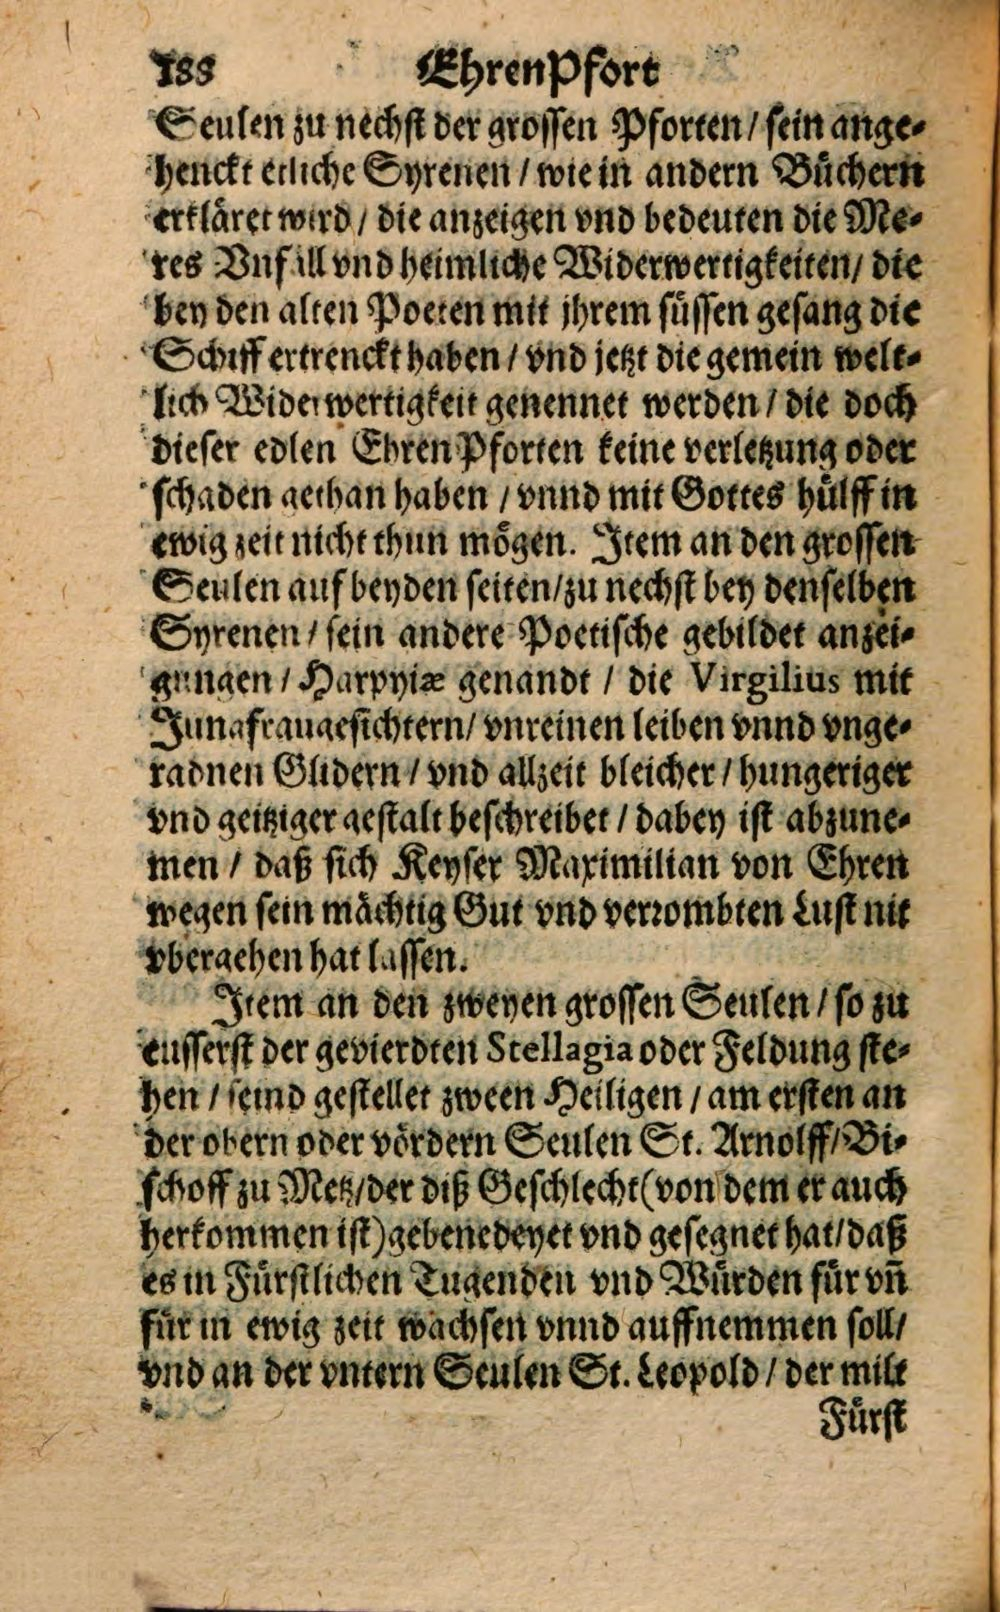 188 EhrenPfort
Seulen zu nechst der grossen Pforten / sein ange-
henckt etliche Syrenen / wie in andern Büchern
erkläret wird / die anzeigen vnd bedeuten die Me-
res Vnfall vnd heimliche Widerwertigkeiten / die
bey den alten Poeten mit jhrem süssen gesang die
Schiff ertrenckt haben / vnd jetzt die gemein welt-
lich Widerwertigkeit genennet werden / die doch
dieser edlen Ehren Pforten keine verletzung oder
schaden gethan haben / vnnd mit Gottes hülff in
ewig zeit nicht thun mögen. Item an den grossen
Seulen auf beyden seiten / zu nechst bey denselben
Syrenen / sein andere Poetische gebildet anzei-
gungen / Harpyiæ genandt / die Virgilius mit
Jungfraugesichtern / vnreinen leiben vnnd vnge-
radnen Glidern / vnd allzeit bleicher / hungeriger
vnd geitziger gestalt beschreibet / dabey ist abzune-
men / daß sich Keyser Maximilian von Ehren
wegen sein mächtig Gut vnd verrombten Lust nit
vbergehen hat lassen.
Item an den zweyen grossen Seulen / so zu
eusserst der gevierdten Stellagia oder Feldung ste-
hen / seind gestellet zween Heiligen / am ersten an
der obern oder vördern Seulen St. Arnolff / Bi-
schoff zu Metz / der diß Geschlecht (von dem er auch
herkommen ist) gebenedeyet vnd gesegnet hat / daß
es in Fürstlichen Tugenden vnd Würden für vn̄
für in ewig zeit wachsen vnnd auffnemmen soll /
vnd an der vntern Seulen St. Leopold / der milt
Fürst